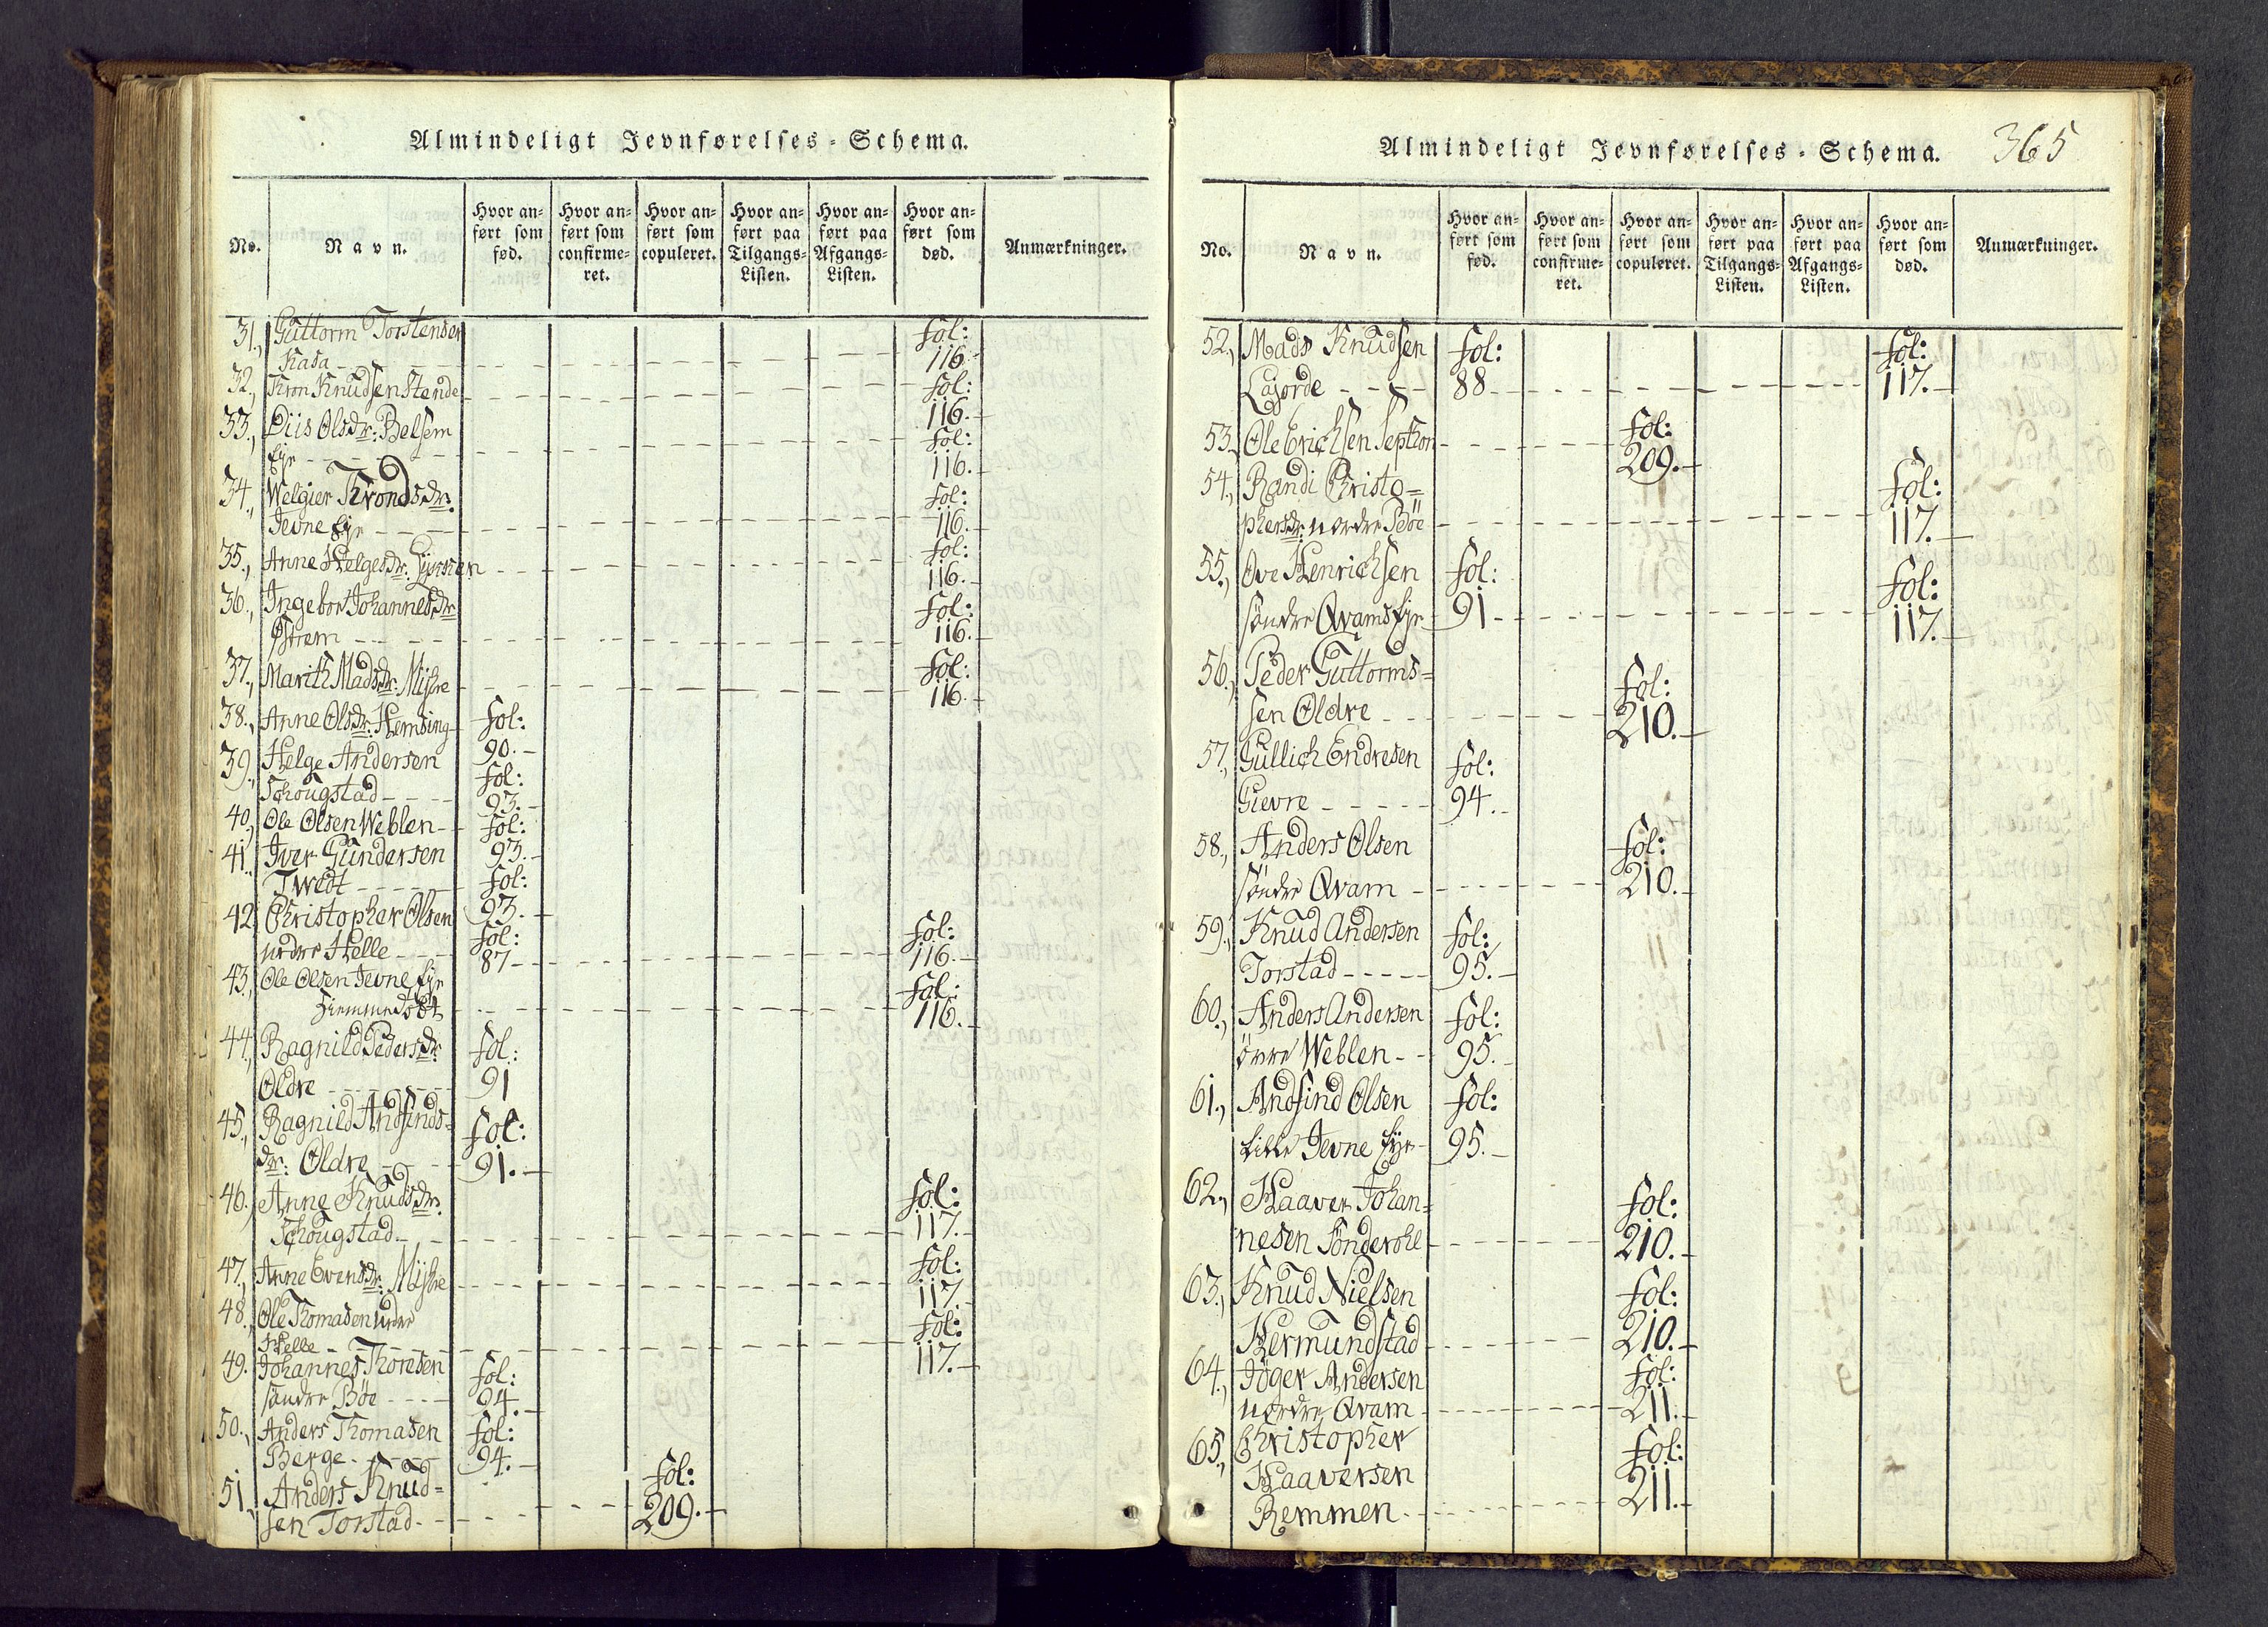 Almindeligt Jevnførelses-Schema.
No.
Navn.
Hvor an-
ført som
fød.
Hvor an-
ført som
confirme-
ret.
Hvor an-
ført som
copuleret.
Hvor an-
ført paa
Tilgangs-
Listen.
Hvor an-
ført paa
Afgangs-
Listen.
Hvor an-
ført som
død.
Anmærkninger.
31., Guttorm Torstensen fol:
Kasa 116.
32., Knudsen fol:
116.
33., Olsdr: Belsem fol:
Eje 116.
34., Welgier Trondsdr: fol:
Jevne Eje 116.
35., Anne Helgesdr: fol:
116.
36., Ingebor Johannesdr: fol:
116.
37., Marith Madsdr: Mysre fol:
116.
38., Anne Olsdr: Hemsing fol:
90.
39., Helge Andersen fol:
Schougstad 93.
40., Ole Olsen Weblen fol:
93.
41., Iver Gundersen fol:
Twedt 93.
42., Christopher Olsen fol: fol:
nedre Helle 87 116.
43., Ole Olsen Jevne Eje fol:
116.
44., Ragnild Pedersdr: fol:
Oldre 91
45., Ragnild Andfinds- fol:
dr: Oldre 91.
46., Anne Knudsdr: fol:
Schougstad 117.
47., Anne Evensdr: Mysre fol:
117.
48., Ole Thomasen nedre fol:
Helle 117.
49. Johannes Thoresen fol:
søndre Bøe 94.
50., Anders Thomasen fol:
Berge 94.
51., Anders Knud- fol:
sen Torstad 209.
Almindeligt Jevnførelses-Schema. 365
No.
Navn.
Hvor an-
ført som
fød.
Hvor an-
ført som
confirme-
ret.
Hvor an-
ført som
copuleret.
Hvor an-
ført paa
Tilgangs-
Listen.
Hvor an-
ført paa
Afgangs-
Listen.
Hvor an-
ført som
død.
Anmærkninger.
52., Mads Knudsen fol: fol:
88 117.
53., Ole Erichsen fol:
209.
54., Randi Christo= fol:
phersdr: nordre Bøe 117.
55., Ove Henrichsen fol: fol:
søndre Qvams Eje 91 117.
56., Peder Guttorms= fol:
sen Oldre 210.
57., Gullich Endresen fol:
Gievre 94.
58., Anders Olsen fol:
søndre Qvam 210.
59., Knud Andersen fol:
Torstad 95.
60., Anders Andersen fol:
øvre Weblen 95.
61., Andfind Olsen fol:
Lille Jevne Eje 95.
62., Haaver Johan= fol:
nesen Sønderohl 210.
63., Knud Nielsen fol:
Hermundstad 210.
64., Jøger Andersen fol:
nordre Qvam 211.
65., Christopher fol:
Haaversen 211.
Remmen